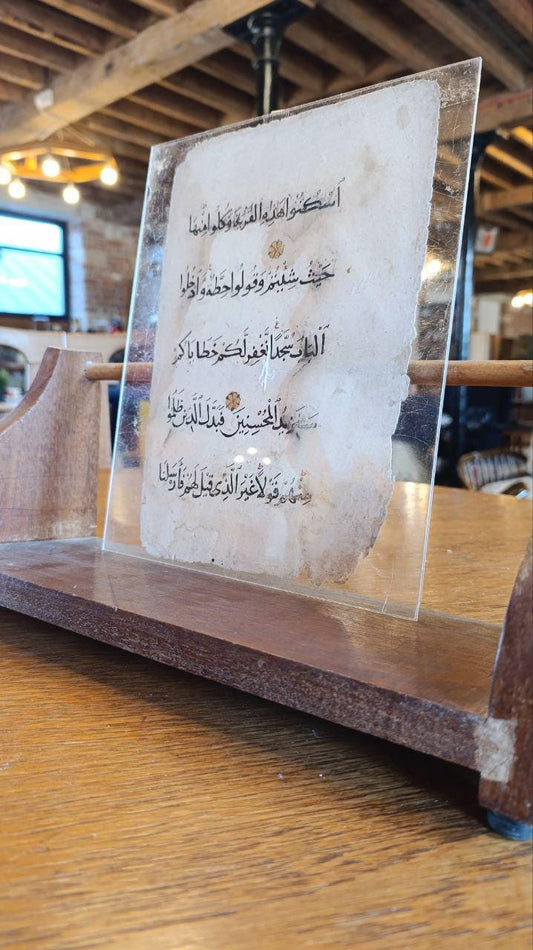 ٱسْكُنُوا هَٰذِهِ ٱلْقَرْيَةَ وَكُلُوا مِنْهَا
حَيْثُ شِئْتُمْ وَقُولُوا حِطَّةٌ وَادْخُلُوا
ٱلْبَابَ سُجَّدًا نَّغْفِرْ لَكُمْ خَطَايَاكُمْ
سَنَزِيدُ ٱلْمُحْسِنِينَ فَبَدَّلَ ٱلَّذِينَ ظَلَمُوا
مِنْهُمْ قَوْلًا غَيْرَ ٱلَّذِى قِيلَ لَهُمْ فَأَرْسَلْنَا